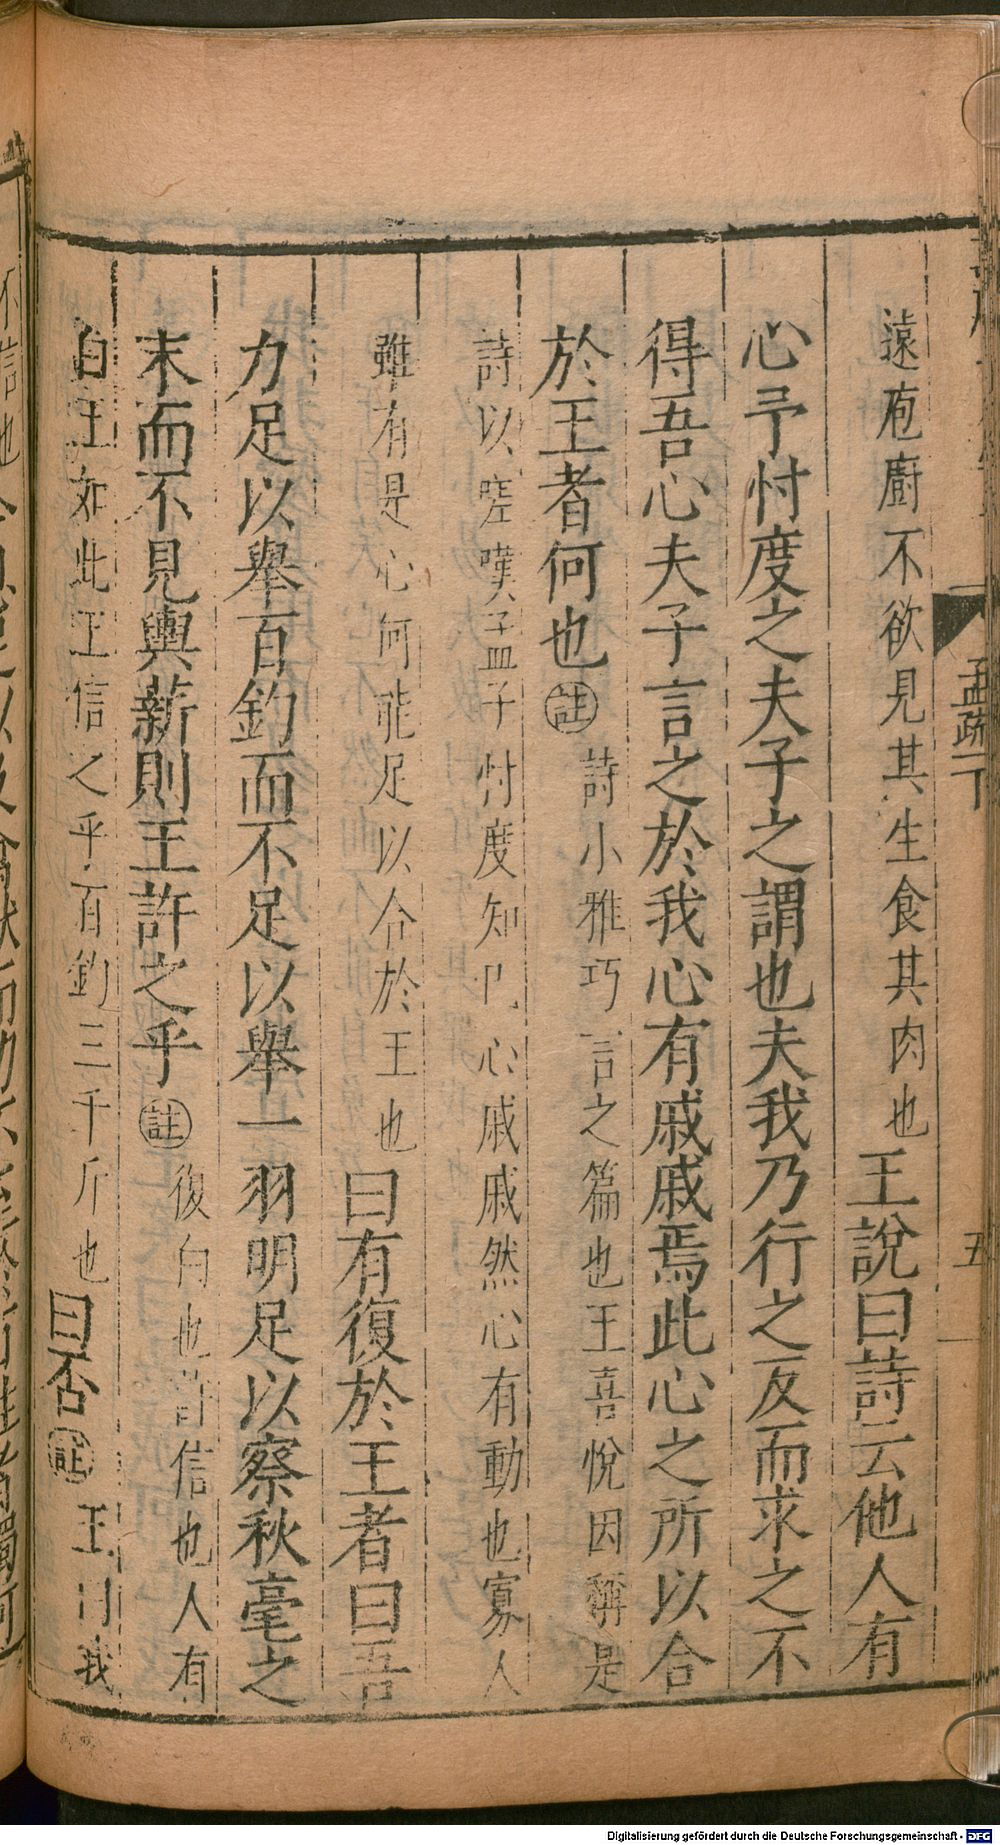 遠庖廚不欲見其生食其肉也王說曰詩云他人有
心予忖度之夫子之謂也夫我乃行之反而求之不
得吾心夫子言之於我心有戚戚焉此心之所以合
於王者何也註詩小雅巧言之篇也王喜悅因稱是
詩以嗟嘆孟子忖度知己心戚戚然心有動也寡人
雖有是心何能足以合於王也曰有復於王者曰吾
力足以舉百鈞而不足以舉一羽明足以察秋毫之
末而不見輿薪則王許之乎註復白也許信也人有
白王如此王信之乎百鈞三千斤也曰否註王曰我
孟疏一下
五
Digitalisierung gefördert durch die Deutsche Forschungsgemeinschaft - DFG